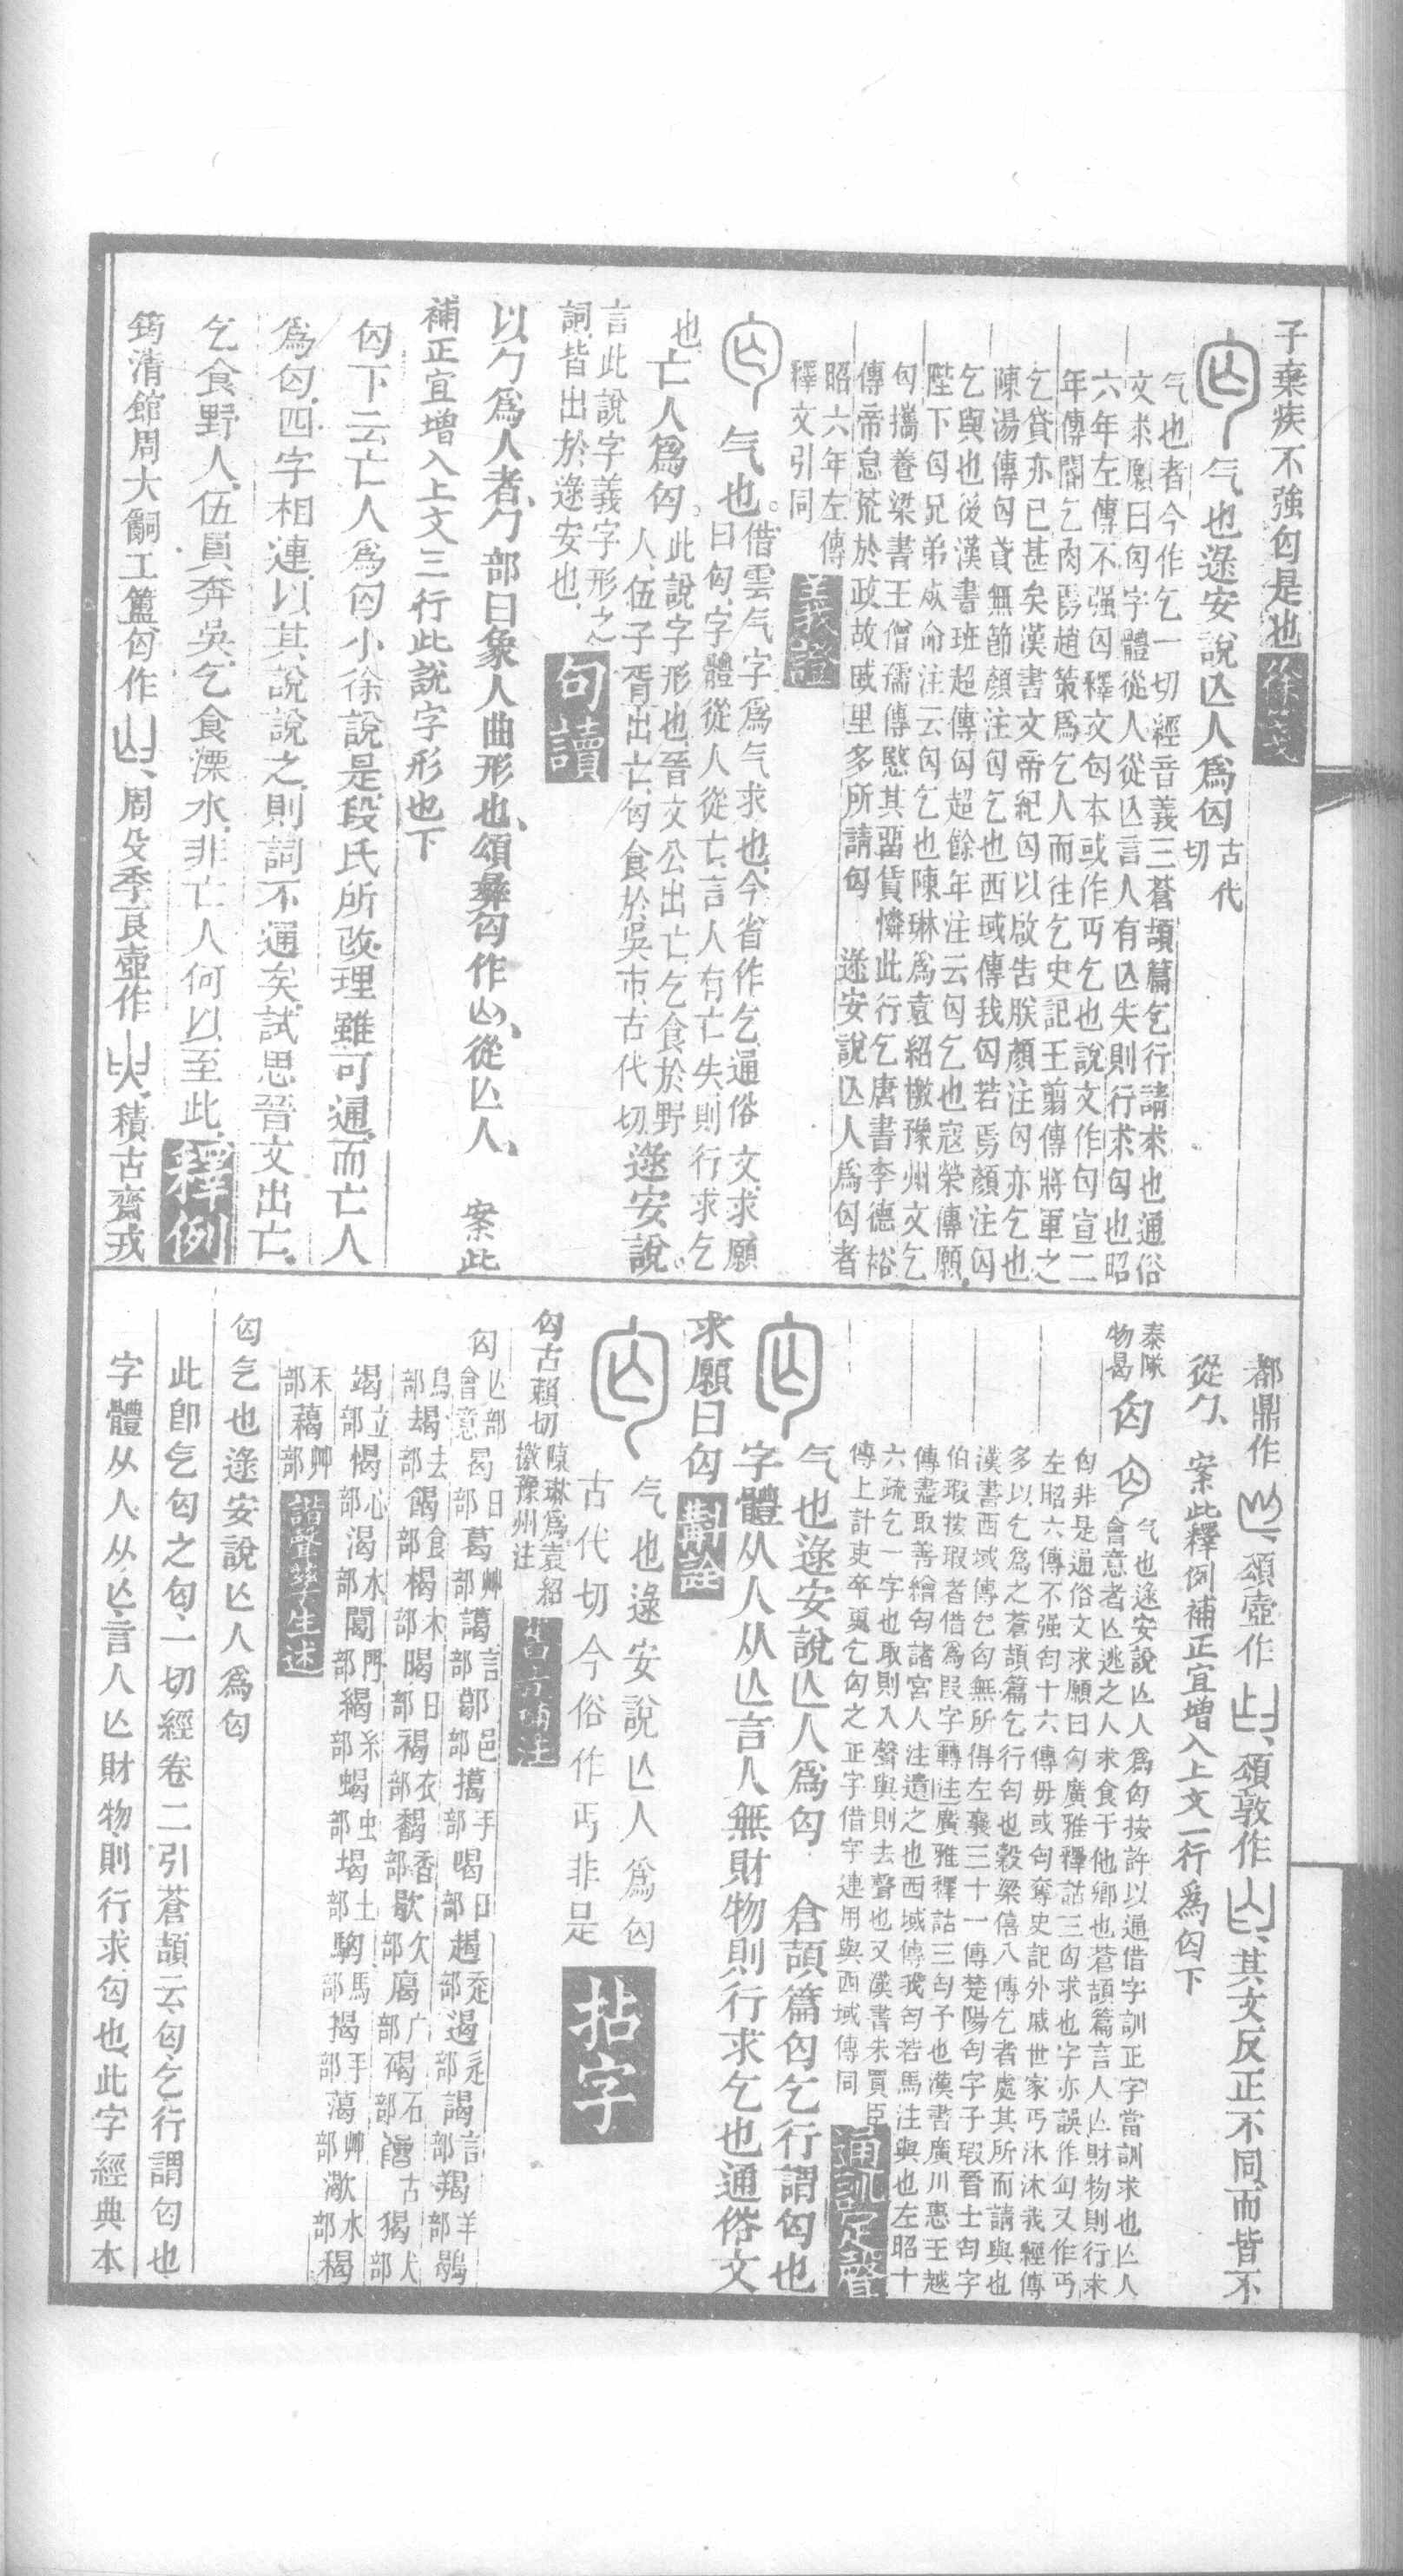 子棄疾不強匃是也徐箋
气也逯安說亾人爲匃古代切
气也者今作乞一切經音義三蒼頡篇乞行請求也通俗
文求願曰匃字體從人從亾言人有亾失則行求匃也昭
六年左傳不强匃釋文匃本或作丐乞也說文作匃宣二
年傳閽乞肉焉趙策爲乞人而往乞史記王翦傳將軍之
乞貸亦已甚矣漢書文帝紀匃以啟告朕顏注匃亦乞也
陳湯傳匃貣無節顏注匃乞也西域傳我匃若焉顏注匃
乞與也後漢書班超傳匃超餘年注云匃乞也寇榮傳願
陛下匃兄弟死命注云匃乞也陳琳爲袁紹檄豫州文乞
匃攜養梁書王僧孺傳愍其留貨憐此行乞唐書李德裕
傳帝怠荒於政故戚里多所請匃 逯安說亾人爲匃者
昭六年左傳
釋文引同義證
气也。借雲气字爲气求也、今省作乞、通俗文、求願
曰匃、字體從人從亡、言人有亡失、則行求乞
也、亡人爲匃。此說字形也、晉文公出亡、乞食於野
人、伍子胥出亡、匃食於吳市、古代切、逯安說。
言此說字義字形之
詞、皆出於逯安也、句讀
以勹爲人者、勹部曰象人曲形也、頌彝匃作、從亾人、 案此
補正宜增入上文三行此說字形也下
匃下云亡人爲匃小徐說是、段氏所改、理雖可通、而亡人
爲匃、四字相連、以其說說之、則詞不通矣、試思晉文出亡、
乞食野人、伍員奔吳、乞食溧水、非亡人何以至此、釋例
筠清館周大嗣工簠、匃作、周殳季良壺作、積古齋戎
都鼎作、頌壺作、頌敦作、其文反正不同、而皆不
從勹、 案此釋例補正宜增入上文一行爲匃下
泰隊
物曷匃
气也逯安說亾人爲匃按許以通借字訓正字當訓求也亾人
會意者亾逃之人求食于他鄉也蒼頡篇言人亾財物則行求
匃非是通俗文求願曰匃廣雅釋詁三匃求也字亦誤作匂又作丐
左昭六傳不强匃十六傳毋或匃奪史記外戚世家丐沐沐我經傳
多以乞爲之蒼頡篇乞行匃也穀梁僖八傳乞者處其所而請與也
漢書西域傳乞匃無所得左襄三十一傳楚陽匃字子瑕晉士匃字
伯瑕按瑕者借爲叚字轉注廣雅釋詁三匃予也漢書廣川惠王越
傳盡取善繒匃諸宮人注遺之也西域傳我匃若馬注與也左昭十
六疏乞一字也取則入聲與則去聲也又漢書朱買臣
傳上計吏卒更乞匃之正字借字連用與西域傳同通訓定聲
气也逯安說亾人爲匃 倉頡篇匃乞行謂匃也
字體从人从亾言人無財物則行求乞也通俗文
求願曰匃斠詮
气也逯安說亾人爲匃
古代切今俗作丐非是拈字
匃古賴切陳琳爲袁紹
檄豫州注
匃亾部會意曷日部葛艸部謁言部鄒邑部擖手部喝日部趨走部遏辵部謁言部羯羊部鶡
鳥部朅去部餲食部楬木部暍日部褐衣部馤香部歇欠部廅广部碣石部古部猲犬部
竭立部愒心部渴水部闔門部緆糸部蝎虫部堨土部騔馬部揭手部藹艸部瀫水部稭
禾部藒艸部諧聲孳生述
匃乞也逯安說亾人爲匃
此卽乞匃之匃、一切經卷二引蒼頡云、匃、乞行謂匃也
字體从人、从亾、言人亾財物、則行求匃也、此字經典本